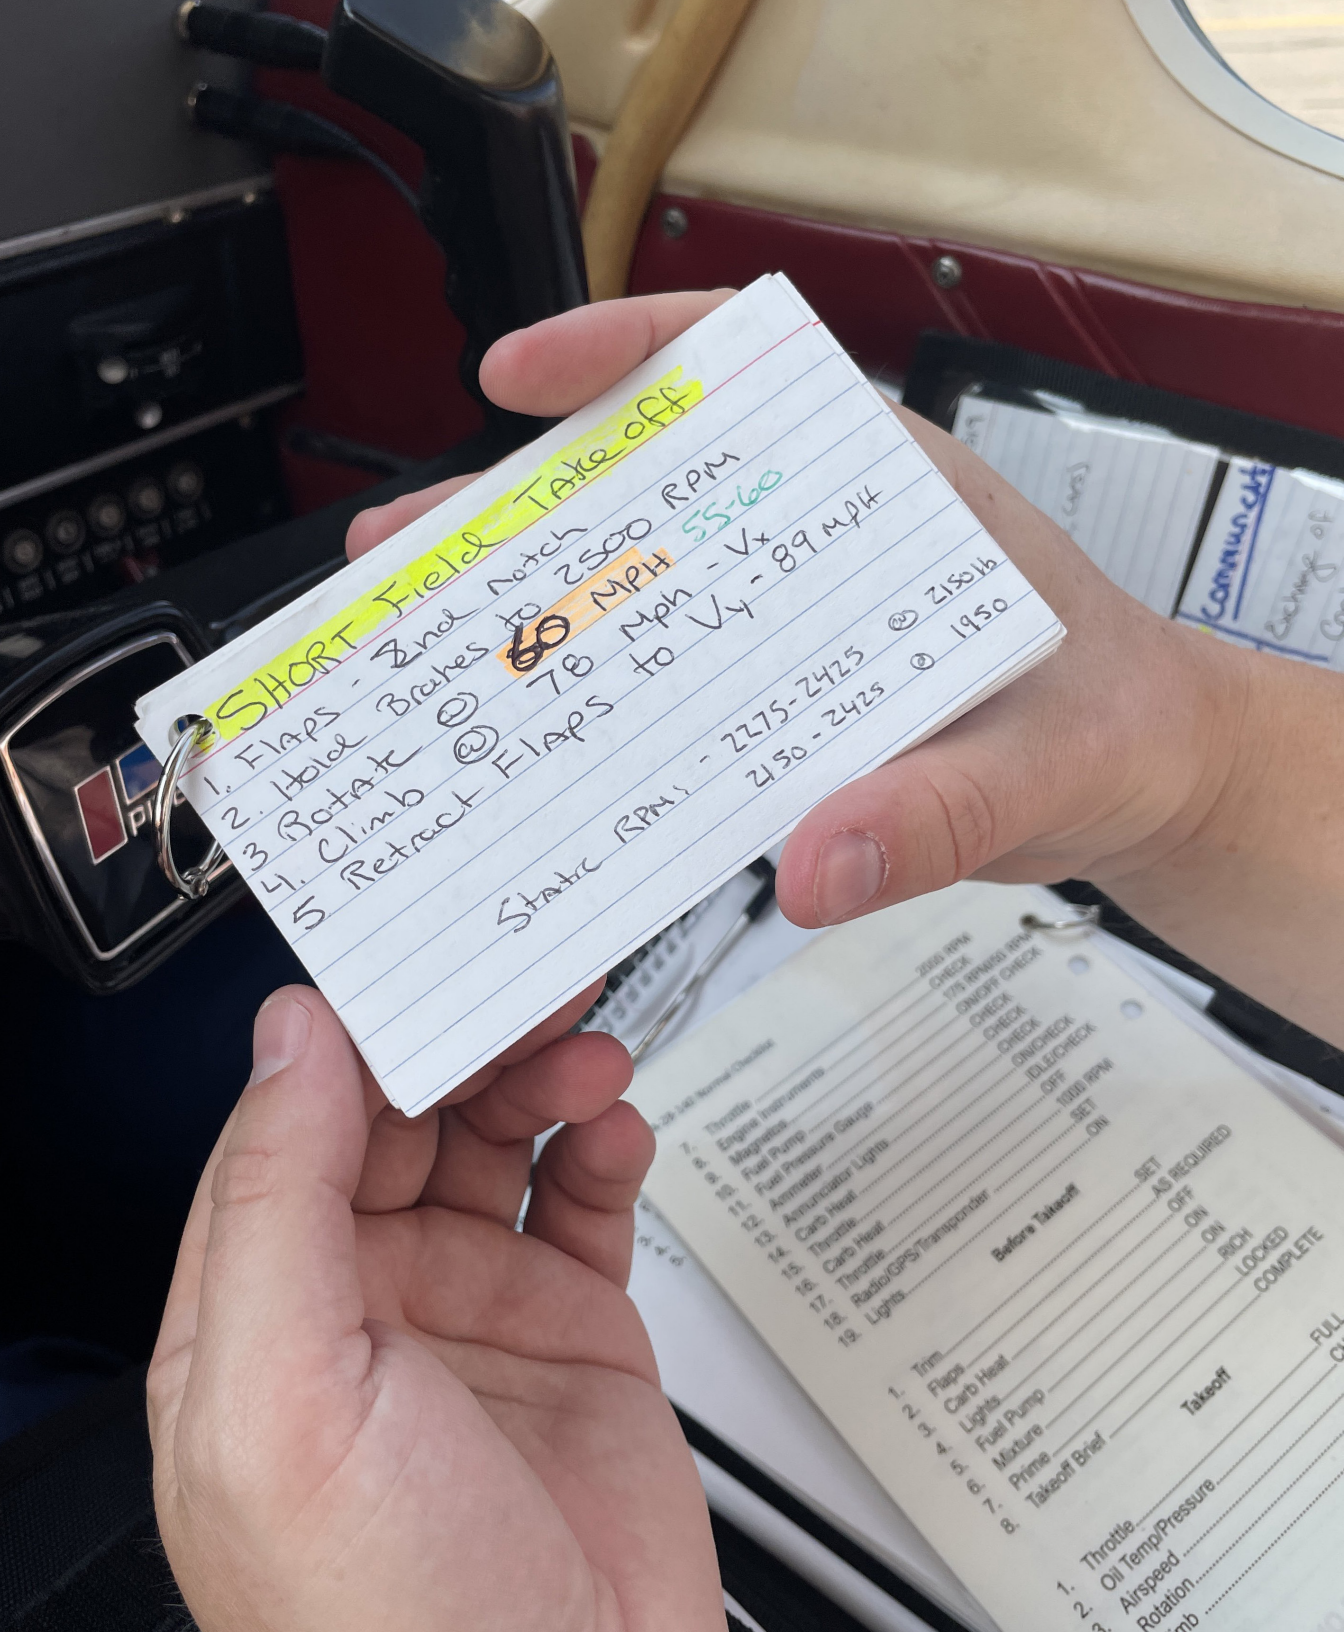 SHORT Field Take off
1. Flaps - 2nd notch
2. Hold Brakes to 2500 RPM
3 Rotate @ 60 MPH 55-60
4. Climb @ 78 Mph - Vx
5 Retract Flaps to Vy - 89 MPH
Static RPM: - 2275-2425 @ 2150 lb
2150-2425 @ 1950
Communicate
Exchange of
28-140 Normal Checklist
7. Throttle 2000 RPM
8. Engine Instruments CHECK
9. Magnetos 175 RPM/50 RPM
10. Fuel Pump ON/OFF CHECK
11. Fuel Pressure Gauge CHECK
12. Ammeter CHECK
13. Annunciator Lights CHECK
14. Carb Heat ON/CHECK
15. Throttle IDLE/CHECK
16. Carb Heat OFF
17. Throttle 1000 RPM
18. Radio/GPS/Transponder SET
19. Lights ON
Before Takeoff
1. Trim SET
2. Flaps AS REQUIRED
3. Carb Heat OFF
4. Lights ON
5. Fuel Pump ON
6. Mixture RICH
7. Prime LOCKED
8. Takeoff Brief COMPLETE
Takeoff
1. Throttle FULL
2. Oil Temp/Pressure
3. Airspeed
Rotation